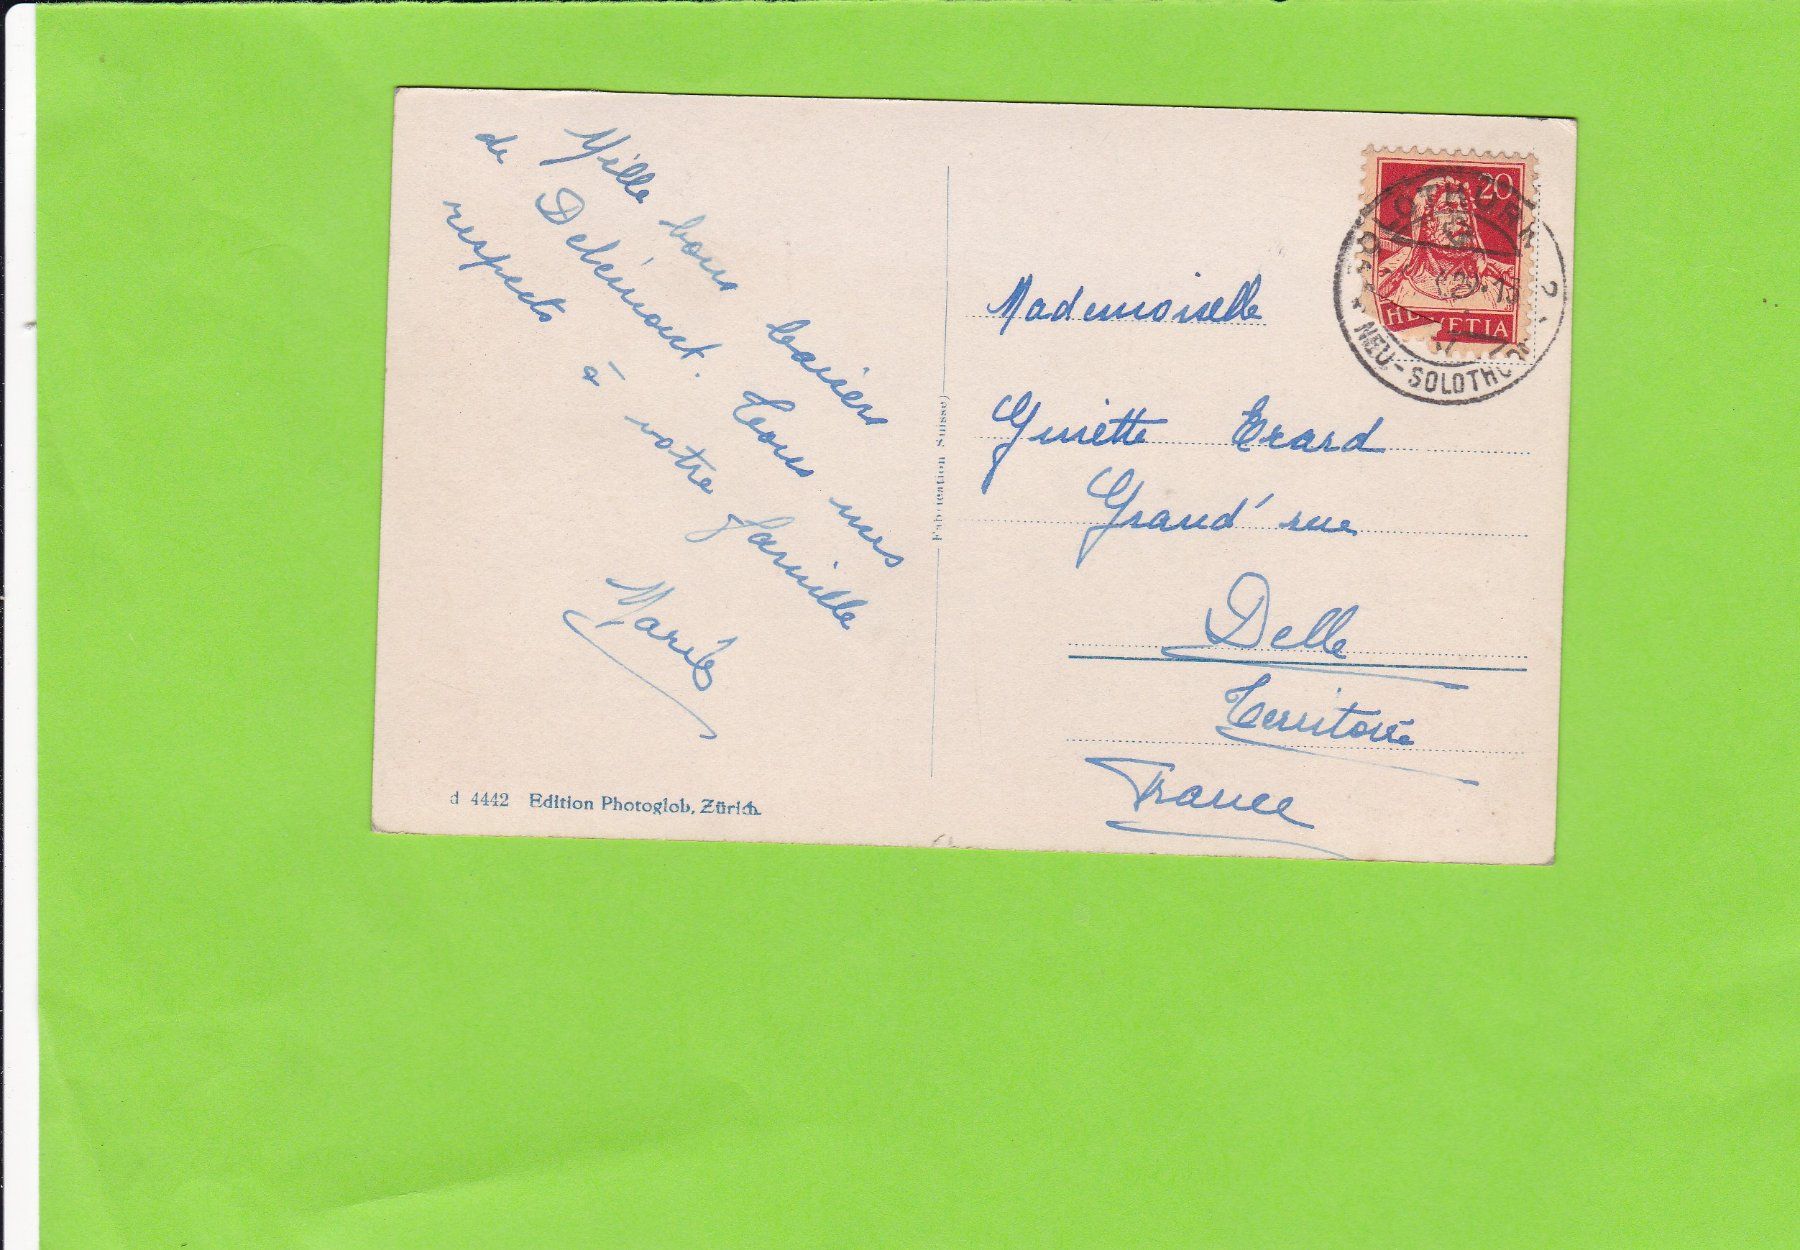 Mille bons baisers
de Delémont. Tous mes
respects à votre famille
Marie
d 4442 Edition Photoglob, Zürich.
Fabrication Suisse
20
HELVETIA
SOLOTHURN 2
NEU-SOLOTHURN
Mademoiselle
Ginette Erard
Grand' rue
Delle
Territoire
France